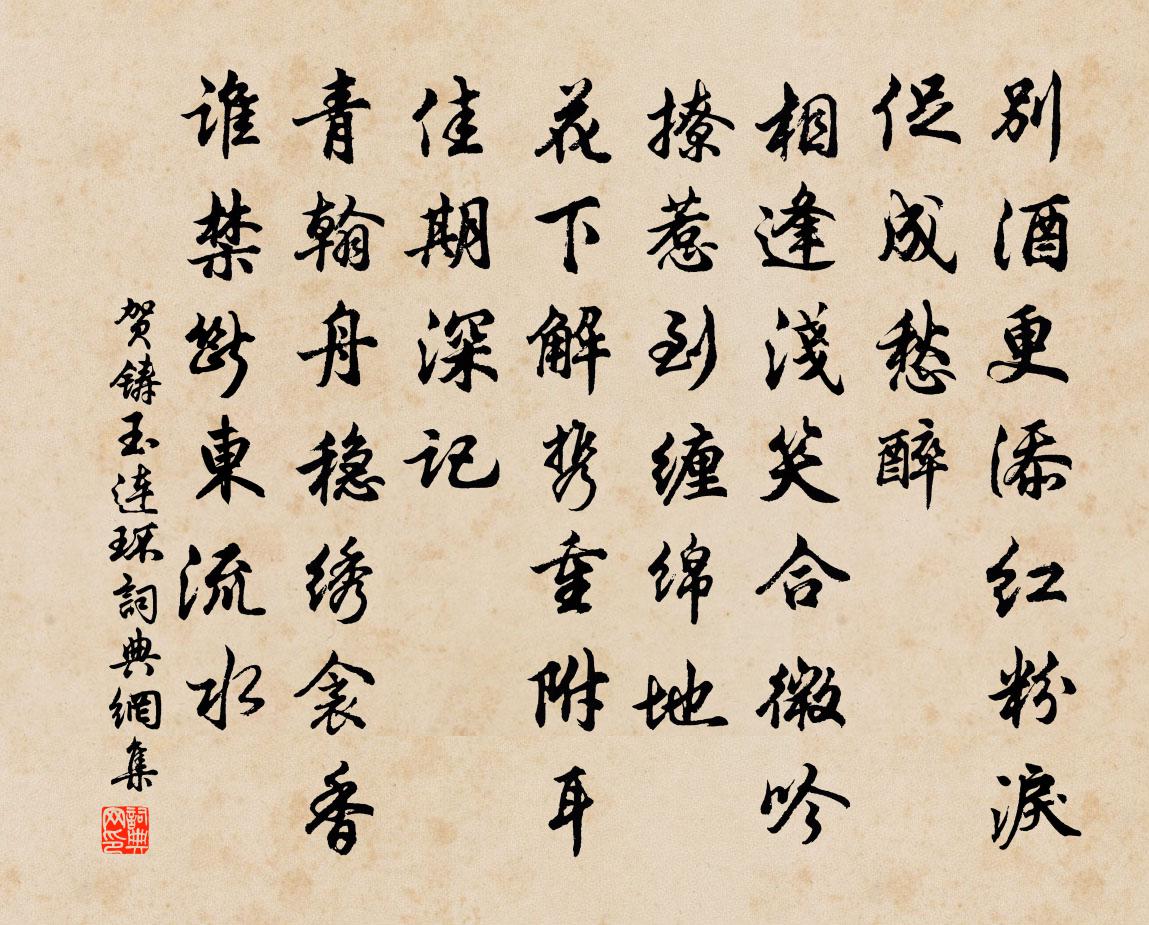 别酒更添红粉淚
促成愁醉
相逢淺笑合微吟
撩惹到缠绵地
花下解携重附耳
佳期深记
青翰舟稳绣衾香
谁禁断東流水
贺鑄玉连环詞典網集
詞典网印